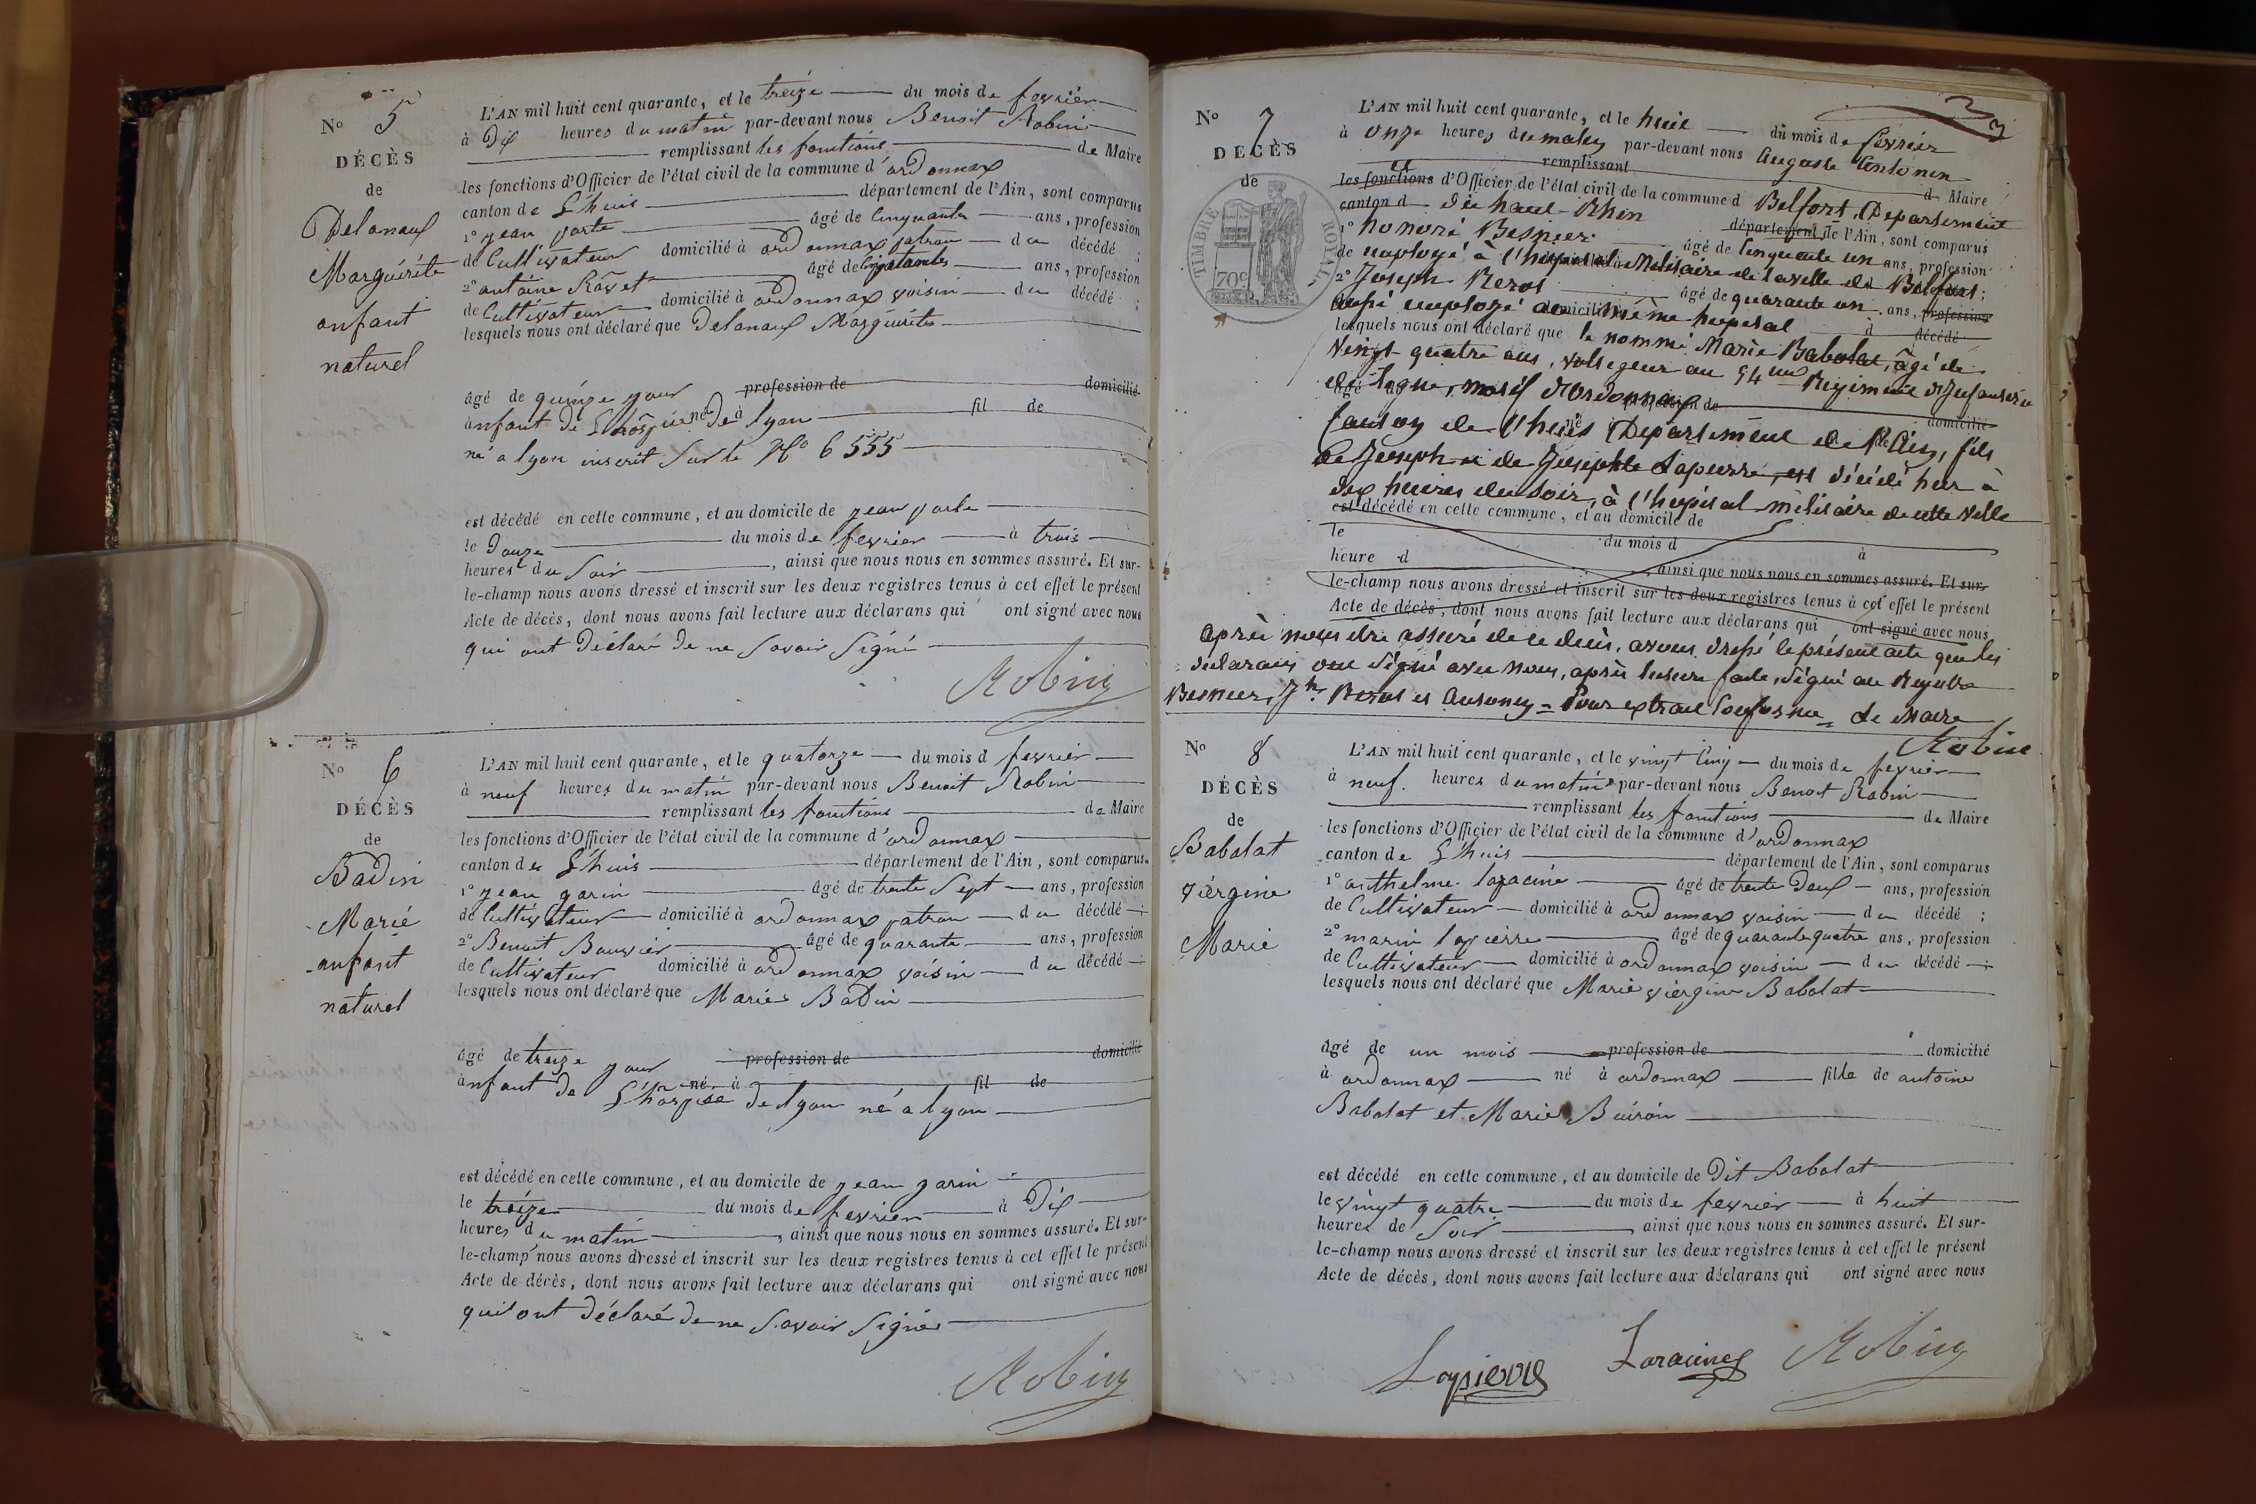 No 5
DÉCÈS
de
Delanaux
Marguérite
enfant
naturel
L'AN mil huit cent quarante, et le treize du mois de fevrier
à Dix heures du matin par-devant nous Benoit Robin
remplissant les fonctions de Maire
les fonctions d'Officier de l'état civil de la commune d'ordonnax
canton de L'huis département de l'Ain, sont comparus
1° jean porte âgé de Cinquante ans, profession
de Cultivateur domicilié à ordonnax patron du décédé ;
2° antoine Ravet âgé de ans, profession
de Cultivateur domicilié à ordonnax voisin du décédé ;
lesquels nous ont déclaré que Delanaux Marguérite
âgé de quinze jour profession de domicilié
enfant de L'hospice né à de lyon fil de
né a lyon inscrit sur le No 6555
est décédé en cette commune, et au domicile de jean porte
le Douze du mois de fevrier à trois
heures du soir, ainsi que nous nous en sommes assuré. Et sur-
le-champ nous avons dressé et inscrit sur les deux registres tenus à cet effet le présent
Acte de décès, dont nous avons fait lecture aux déclarans qui ont signé avec nous
qui ont déclaré de ne savoir signé
Robin
No 6
DÉCÈS
de
Badin
Marié
enfant
naturel
L'AN mil huit cent quarante, et le quatorze du mois d fevrier
à neuf heures du matin par-devant nous Benoit Robin
remplissant les fonctions de Maire
les fonctions d'Officier de l'état civil de la commune d'ordonnax
canton de L'huis département de l'Ain, sont comparus.
1° jean garin âgé de trente Sept ans, profession
de Cultivateur domicilié à ordonnax patron du décédé ;
2° Benoit Bouvier âgé de quarante ans, profession
de Cultivateur domicilié à ordonnax voisin du décédé ;
lesquels nous ont déclaré que Marie Badin
âgé de treize jour profession de domicilié
enfant de né à fil de
L'hospice de lyon né a lyon
est décédé en cette commune, et au domicile de jean garin
le treize du mois de fevrier à Dix
heures du matin, ainsi que nous nous en sommes assuré. Et sur-
le-champ nous avons dressé et inscrit sur les deux registres tenus à cet effet le présent
Acte de décès, dont nous avons fait lecture aux déclarans qui ont signé avec nous
qui ont déclaré de ne savoir signé
Robin
No 7
DÉCÈS
de
TIMBRE ROYAL
70c
L'AN mil huit cent quarante, et le huit du mois de février
à onze heures du matin par-devant nous Auguste Antonin
remplissant d Maire
les fonctions d'Officier de l'état civil de la commune d Belfort, Département
canton d du haut-Rhin département de l'Ain, sont comparus
1° honoré Besnier âgé de Cinquante un ans, profession
de employé à l'hopital Militaire de la ville de Belfort ;
2° Joseph Rerot âgé de quarante un ans, profession
aussi employé au même hopital d décédé
lesquels nous ont déclaré que le nommé Marie Babolat, âgé de
Vingt-quatre ans, voltigeur au 54me Regiment d'Infanterie
de ligne, natif d'Ordonnax profession de domicilié
Canton de l'huis Département de l'Ain, fils
de Joseph et de Josephte Lapierre, est décédé hier à
dix heures du soir, à l'hopital militaire de cette ville
est décédé en cette commune, et au domicile de
le du mois d à
heure d, ainsi que nous nous en sommes assuré. Et sur-
le-champ nous avons dressé et inscrit sur les deux registres tenus à cet effet le présent
Acte de décès, dont nous avons fait lecture aux déclarans qui ont signé avec nous
Après nous être assuré de ce décès, avons dressé le présent acte que les
déclarans ont signé avec nous, après lecture faite, signé au Registre
Besnier, Jh Rerot et Antonin = Pour extrait Conforme = de Maire
Robin
No 8
DÉCÈS
de
Babolat
viérgine
Marie
L'AN mil huit cent quarante, et le vingt Cinq du mois de fevrier
à neuf heures du matin par-devant nous Benoit Robin
remplissant les fonctions de Maire
les fonctions d'Officier de l'état civil de la commune d'ordonnax
canton de L'huis département de l'Ain, sont comparus
1° anthelme laracine âgé de trente Deux ans, profession
de Cultivateur domicilié à ordonnax voisin du décédé ;
2° marin lapierre âgé de quarante quatre ans, profession
de Cultivateur domicilié à ordonnax voisin du décédé ;
lesquels nous ont déclaré que Marie viérgine Babolat
âgé de un mois profession de domicilié
à ordonnax né à ordonnax fille de antoine
Babolat et Marie Buiron
est décédé en cette commune, et au domicile de Dit Babolat
le vingt quatre du mois de fevrier à huit
heures de soir, ainsi que nous nous en sommes assuré. Et sur-
le-champ nous avons dressé et inscrit sur les deux registres tenus à cet effet le présent
Acte de décès, dont nous avons fait lecture aux déclarans qui ont signé avec nous
Lapierre Laracine Robin